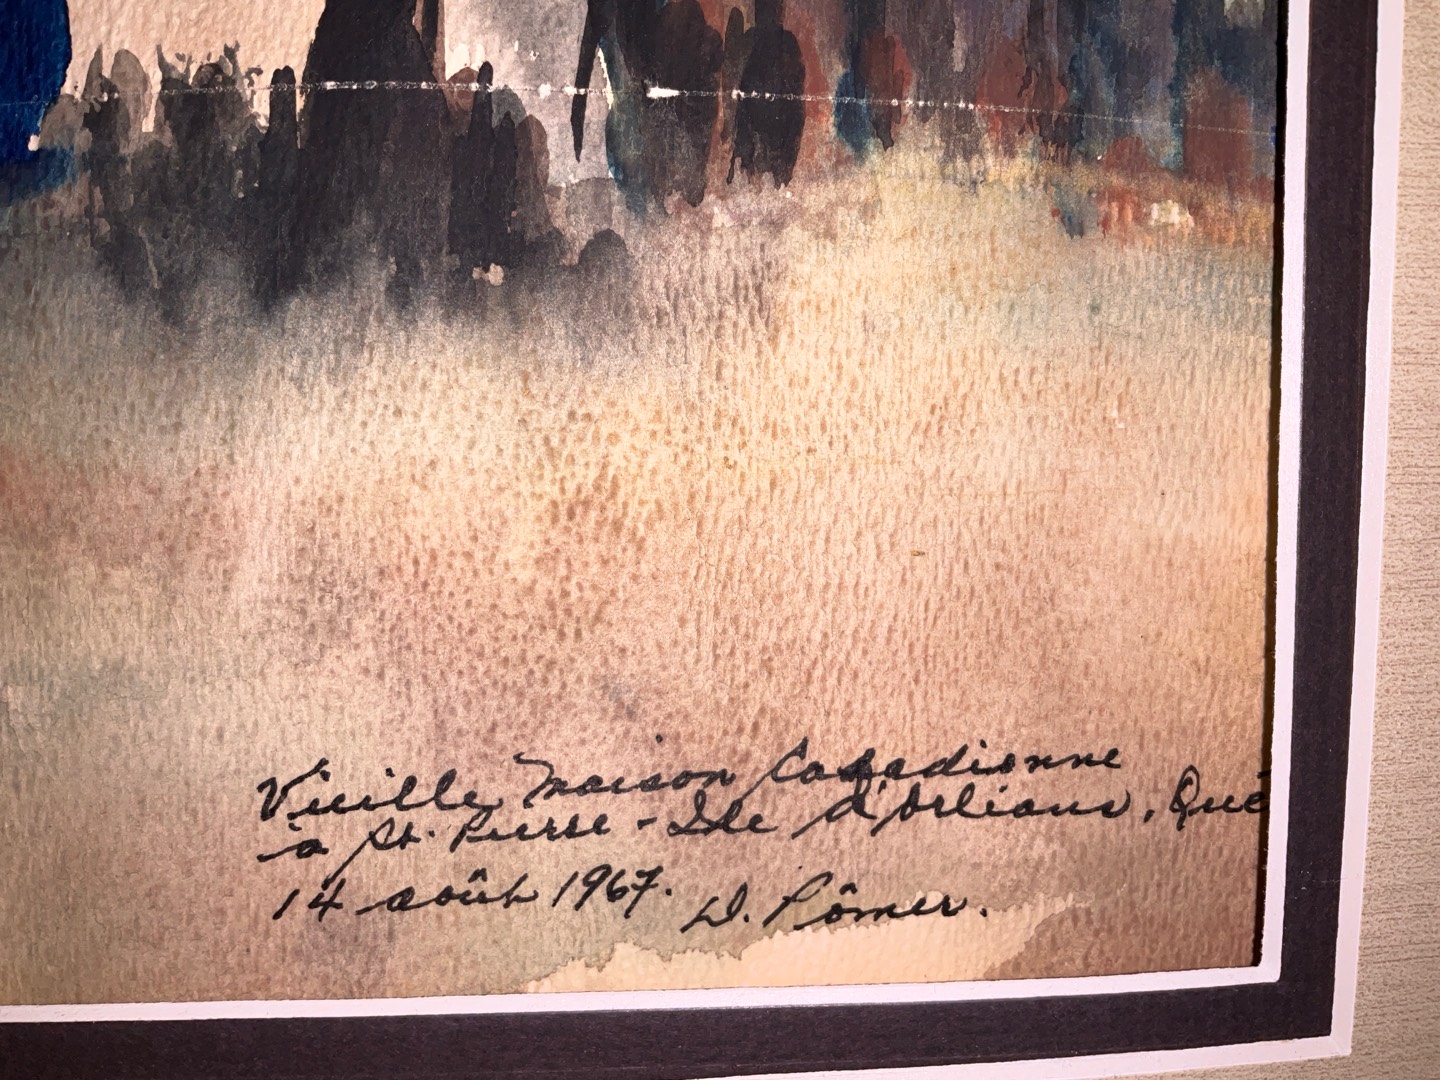 Vieille maison Canadienne
à St. Pierre - Ile d'Orléans, Qué
14 août 1967. D. Pômer.